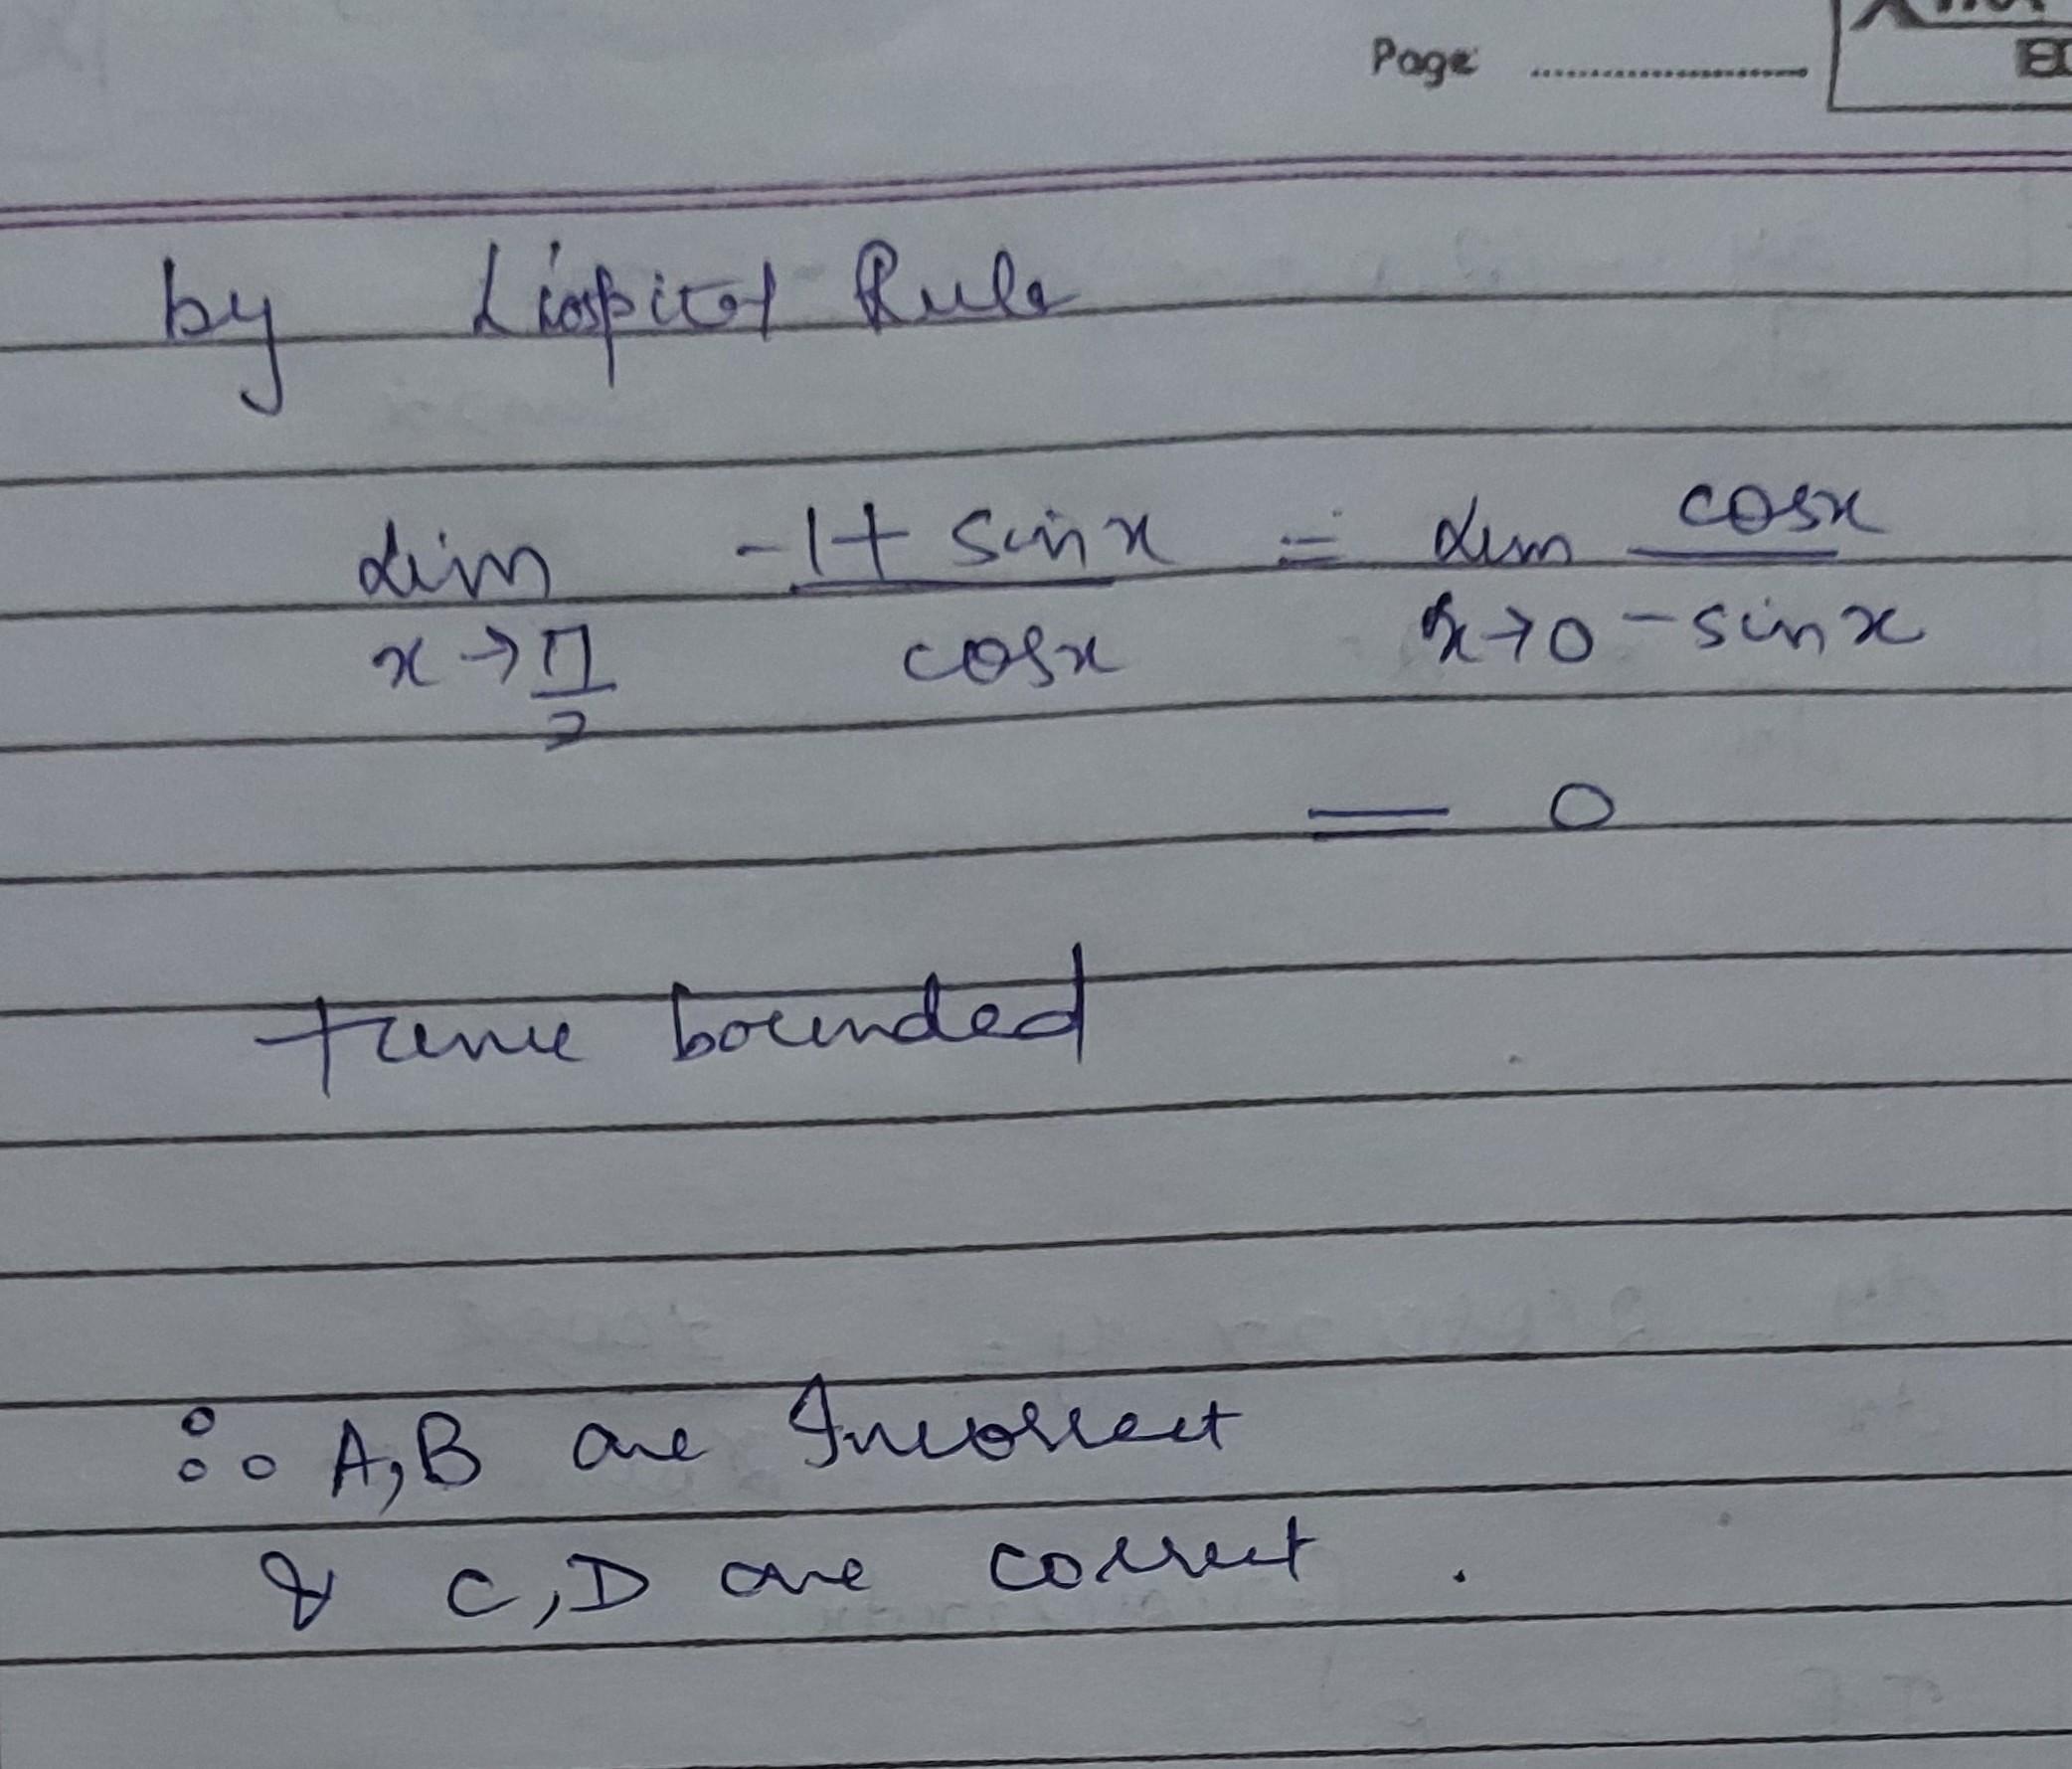 Page
by L'hospital Rule
lim -1+ sin x = lim cosx
x→π/2 cosx x→0 -sin x
= 0
Hence bounded
∴ A,B are Incorrect
& C,D are correct .